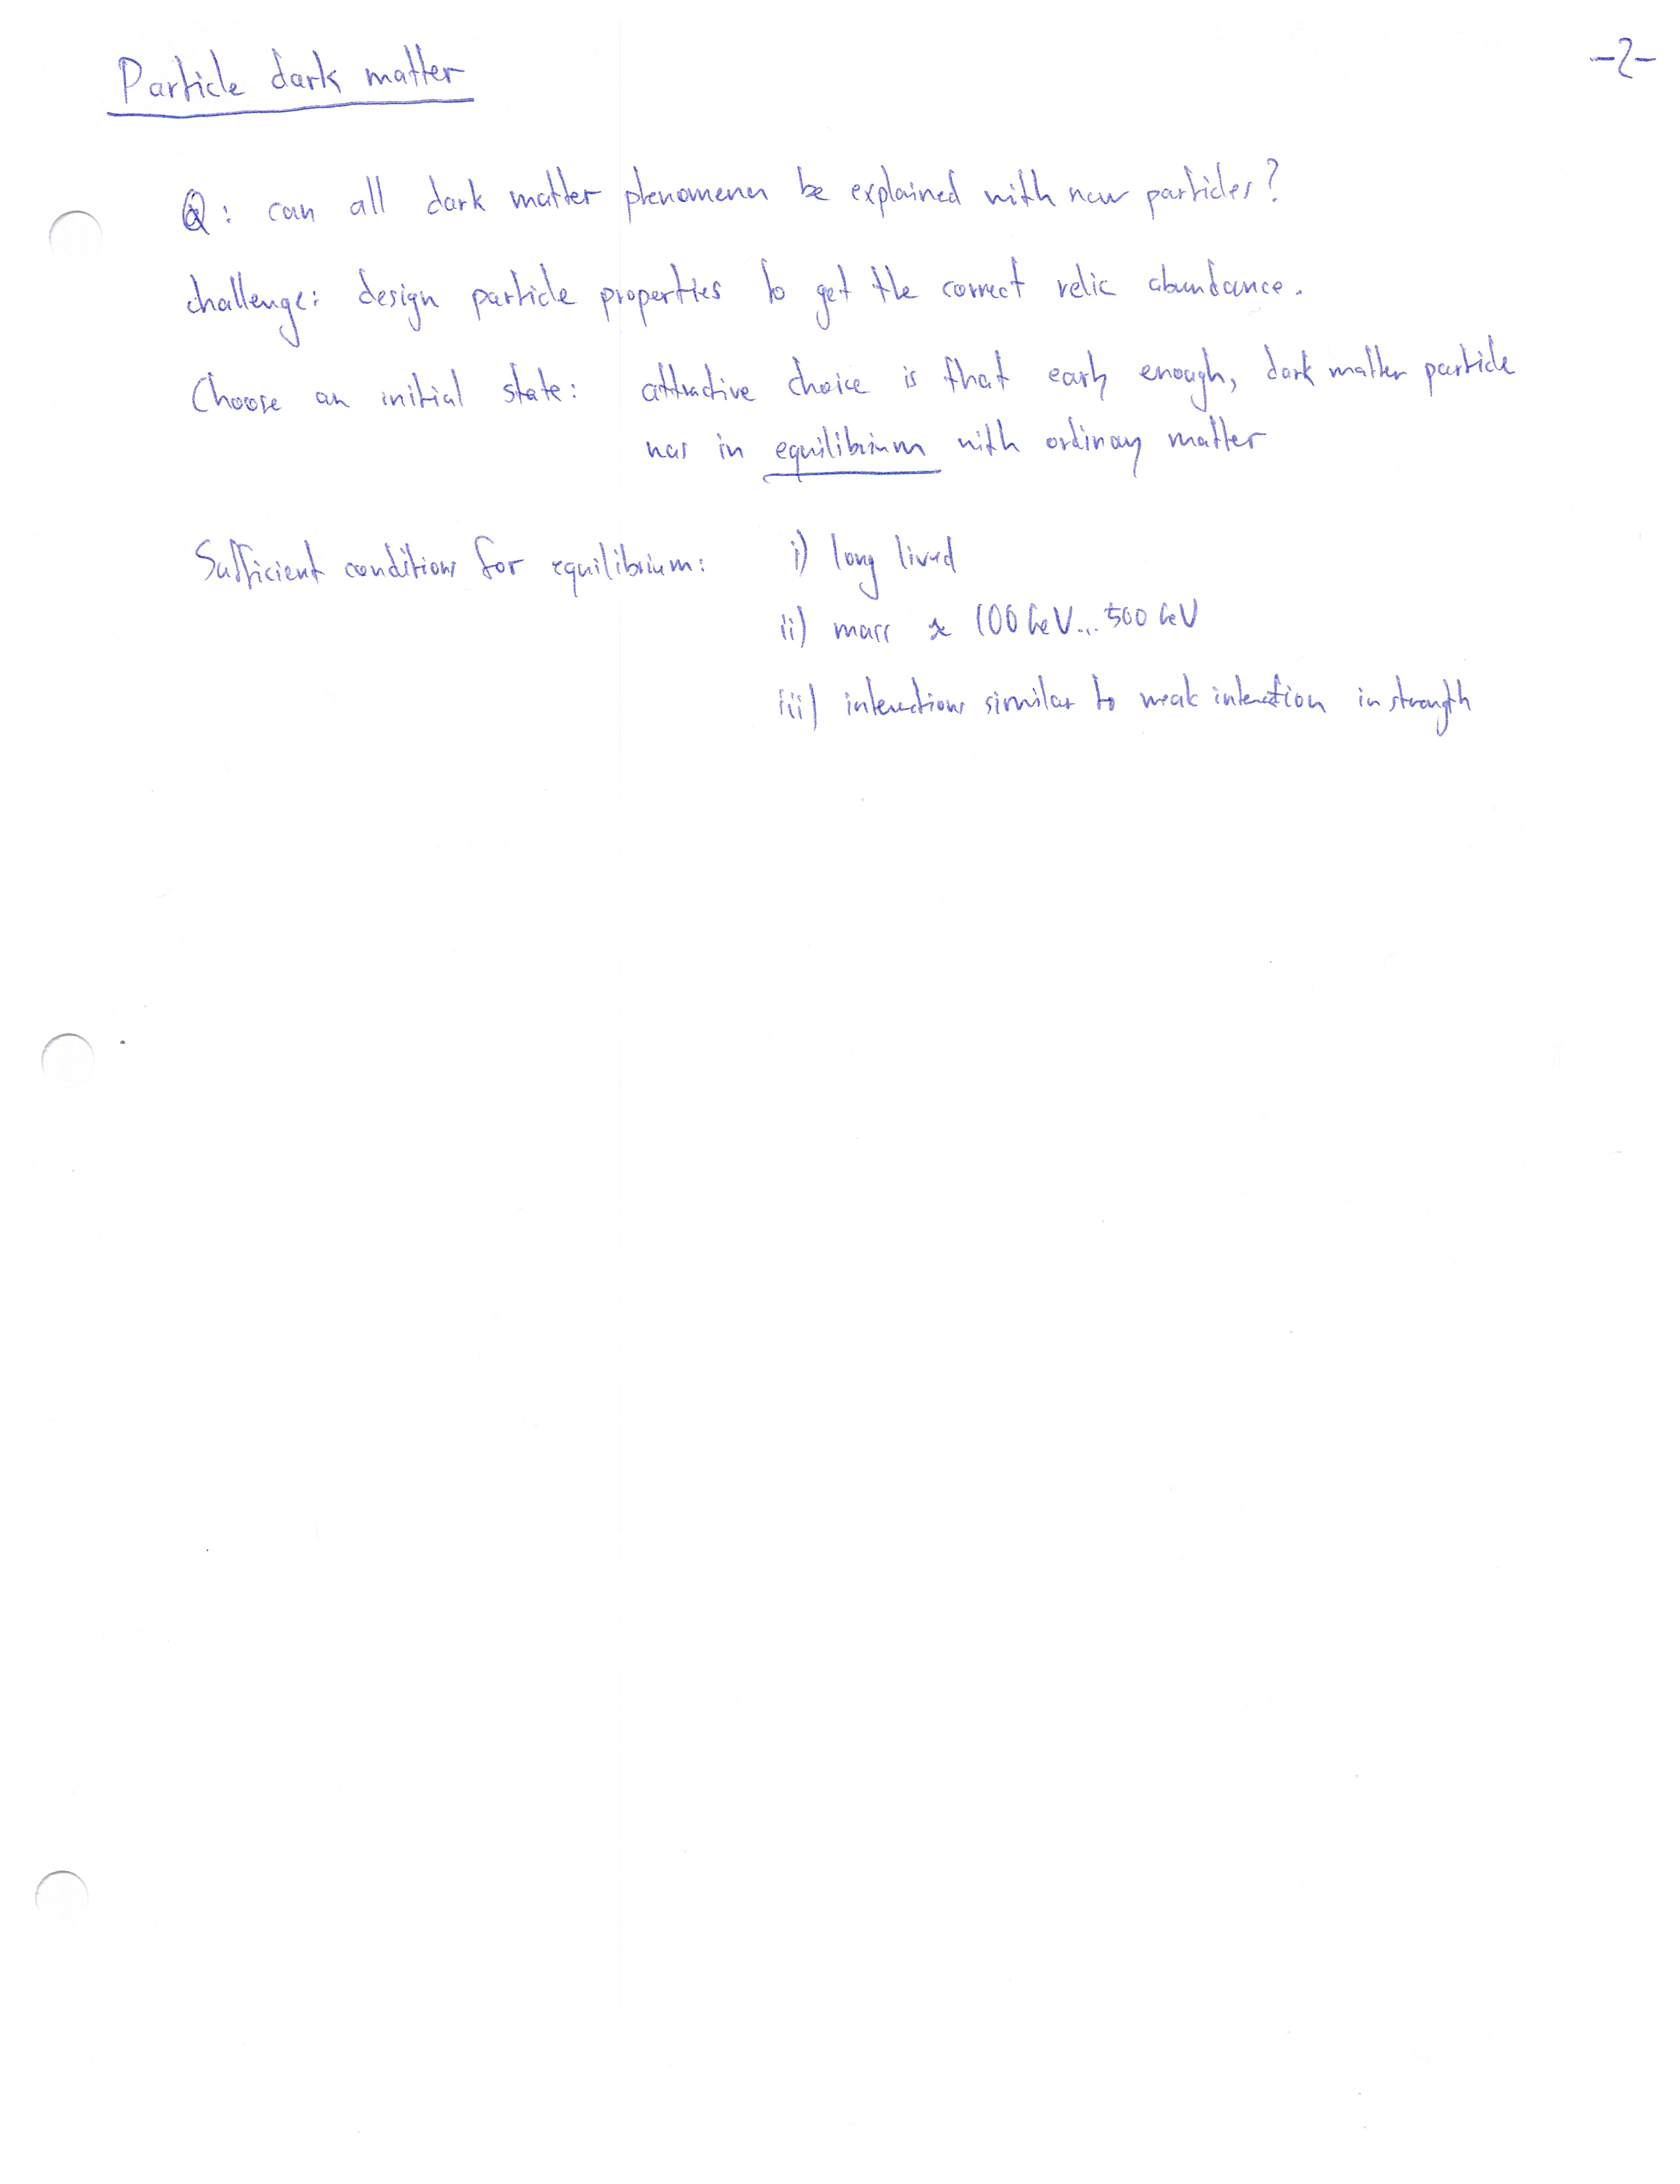 Particle dark matter
-2-
Q: can all dark matter phenomena be explained with new particles?
challenge: design particle properties to get the correct relic abundance.
Choose an initial state: attractive choice is that early enough, dark matter particle
was in equilibrium with ordinary matter
Sufficient conditions for equilibrium: i) long lived
ii) mass ≈ 100 GeV... 500 GeV
iii) interactions similar to weak interaction in strength